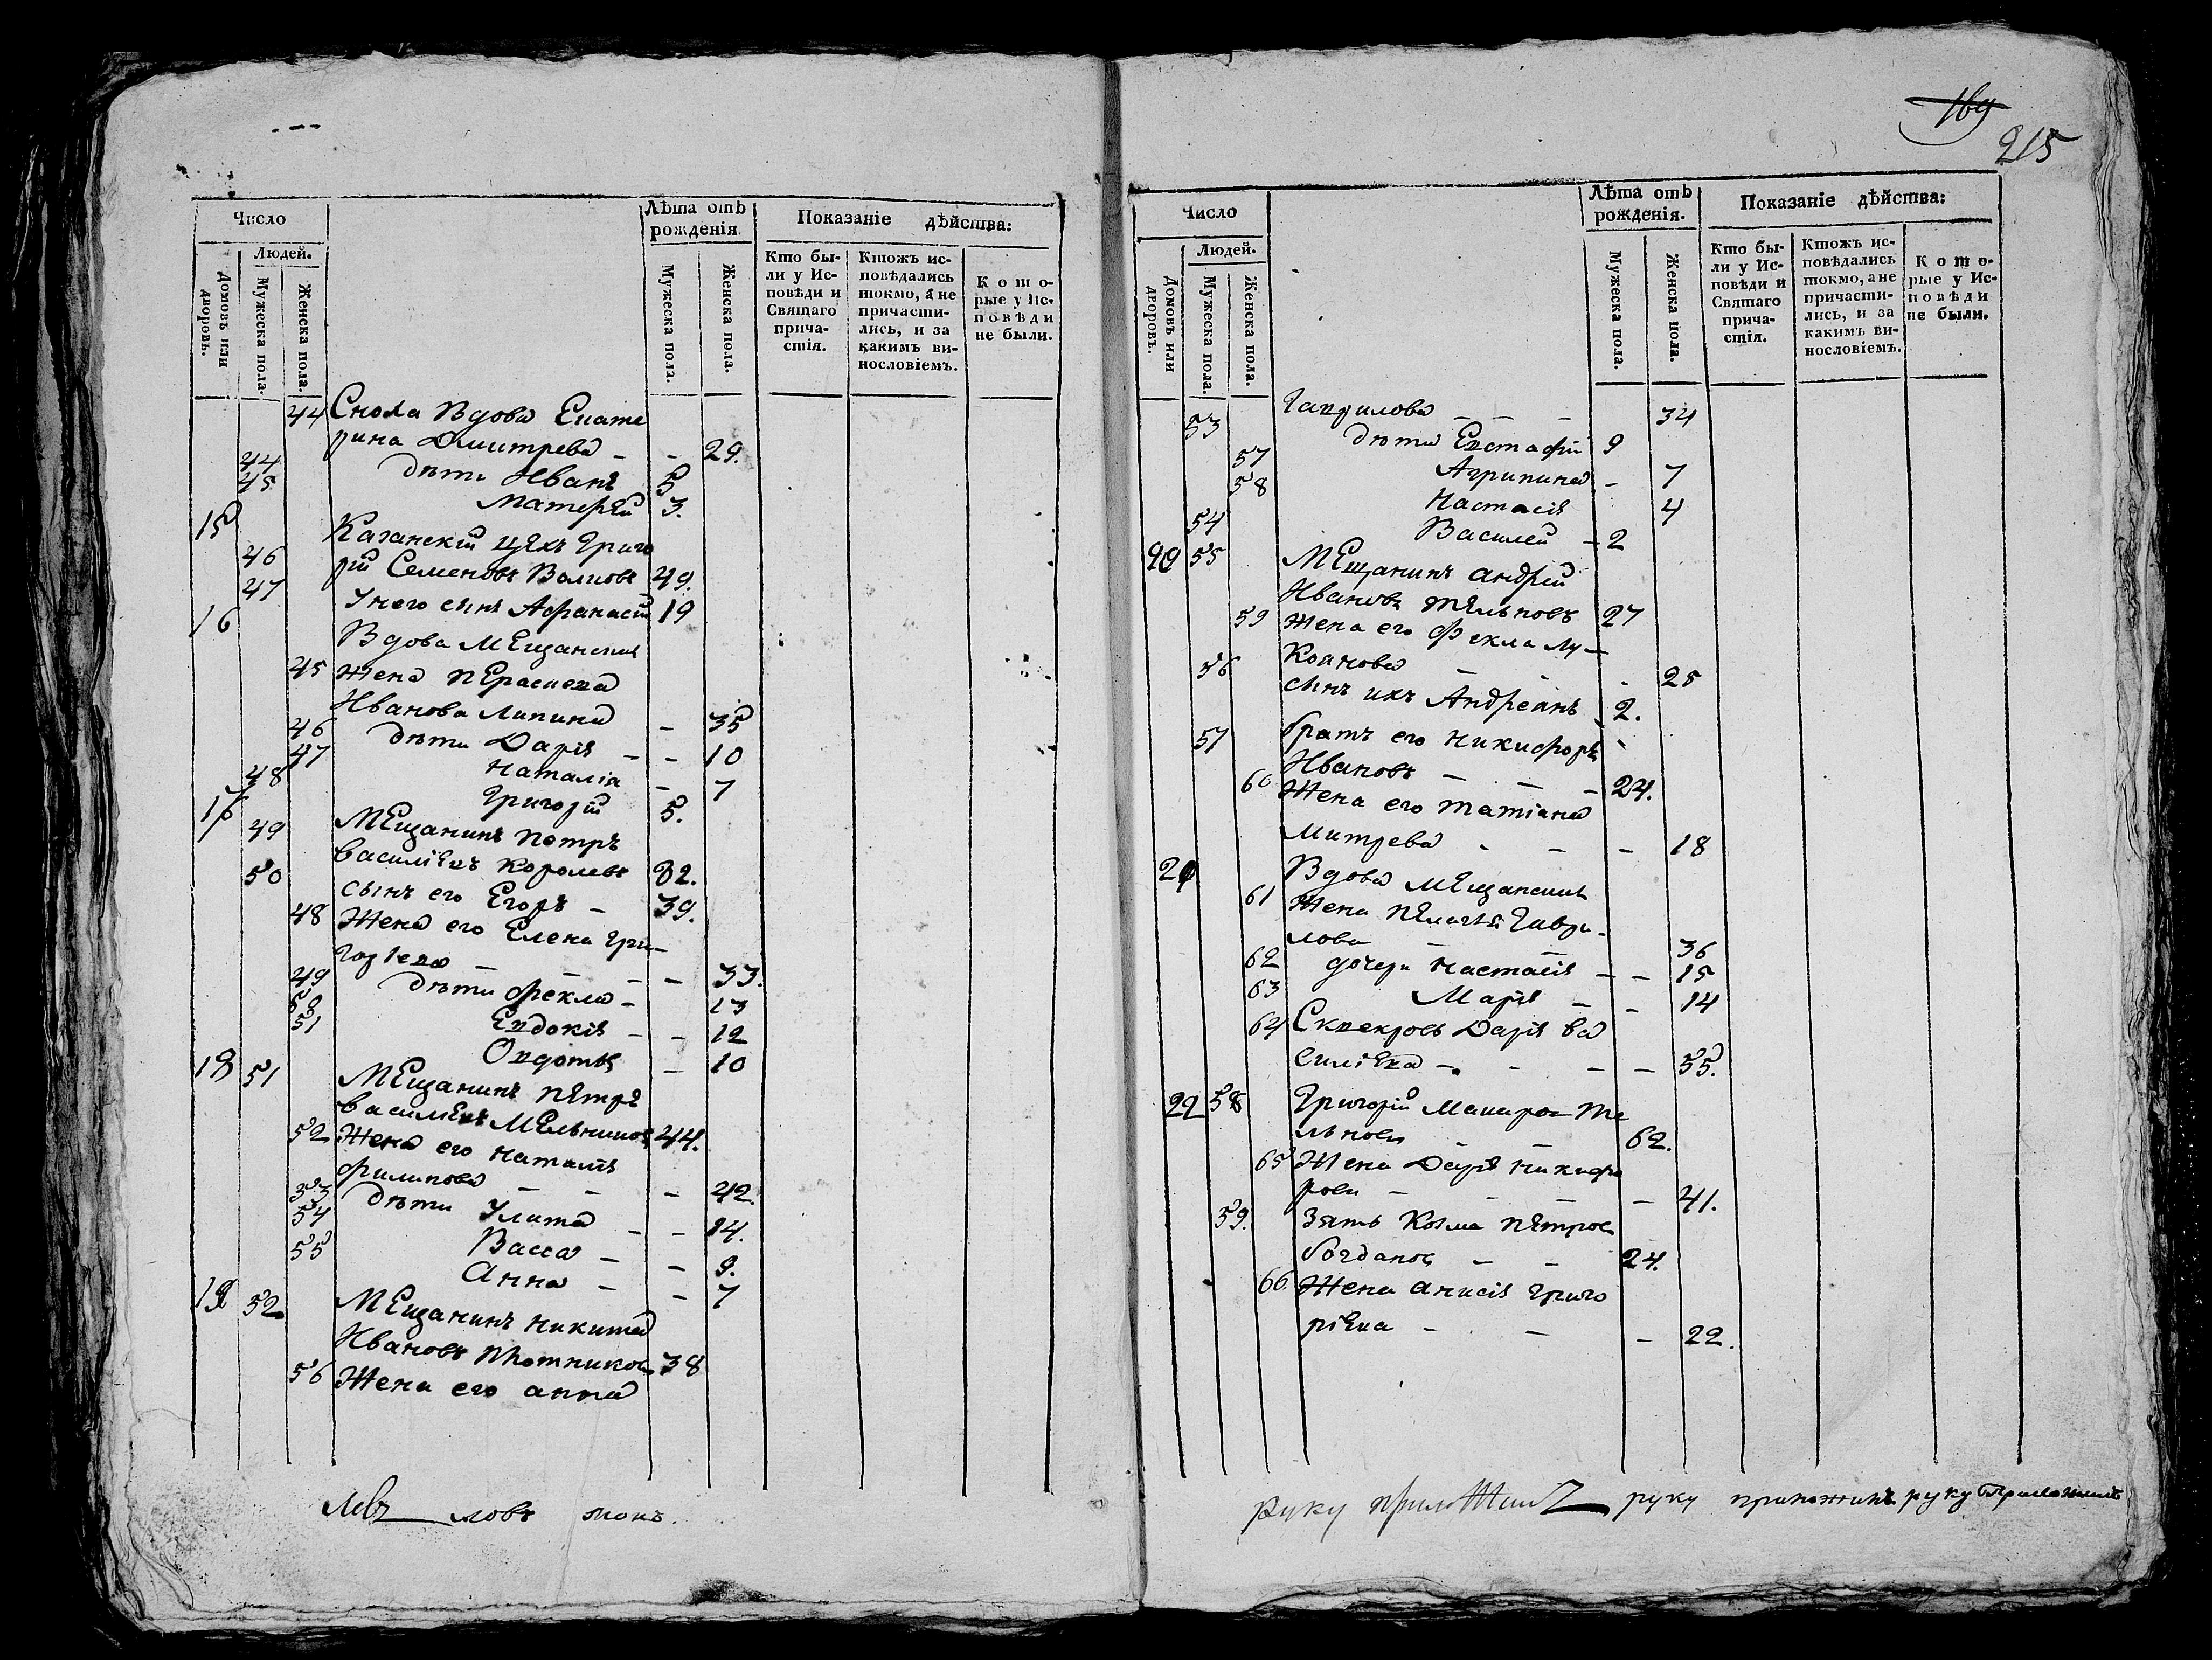 Число
Людей.
Домовъ или дворовъ.
Мужеска пола.
Женска пола.
Лѣта отъ рожденія.
Мужеска пола.
Женска пола.
Показаніе дѣйства:
Кто бы-
ли у Ис-
повѣди и
Святаго
прича-
стія.
Ктожъ ис-
повѣдались
токмо, а не
причасти-
лись, и за
какимъ ви-
нословіемъ.
Кото-
рые у Ис-
повѣди
не были.
44 Сноха Вдова Екате
рина Дмитрева - - 29.
44 дѣти Иванъ 5
45 Матѳей 3.
15 Казанскій цехъ Григо
46 рій Семеновъ Волковъ 49.
47 У него сынъ Афанасій 19
16 Вдова Мещанская
45 Жена Пераскева
Иванова Липина - 35
46 дѣти Дарія - - 10
47 Наталіа - 7
48 Григорій 5.
17 49 Мещанинъ Петръ
Василіевъ Королевъ 82.
50 сынъ его Егоръ - 39.
48 Жена его Елена Гри-
горіева - - - 33.
49 дѣти Фекла - 13
50 Евдокія - - 12
51 Овдотья - 10
18 51 Мещанинъ Петръ
Василіевъ Мельниковъ 44.
52 Жена его Наталія
Филипова - - - 42.
53 дѣти Улита - - 14.
54 Васса - - 9.
55 Анна - - 7
19 52 Мещанинъ Никита
Ивановъ Плотниковъ 38
56 Жена его анна
169
215
Число
Людей.
Домовъ или дворовъ.
Мужеска пола.
Женска пола.
Лѣта отъ рожденія.
Мужеска пола.
Женска пола.
Показаніе дѣйства:
Кто бы-
ли у Ис-
повѣди и
Святаго
прича-
стія.
Ктожъ ис-
повѣдались
токмо, а не
причасти-
лись, и за
какимъ ви-
нословіемъ.
Кото-
рые у Ис-
повѣди
не были.
Гаврилова - - - 34
53 дѣти Евстафій 9
57 Агрипина - 7
58 Настасія 4
54 Василей - 2
20 55 Мещанинъ андрей
Ивановъ Тельновъ 27
59 Жена его Фекла Лу-
кианова - - - 25
56 сынъ ихъ Андреанъ 2.
57 братъ его Никифоръ
Ивановъ - - - 24.
60 Жена его татіана
Митрева - - - 18
21 Вдова Мещанская
61 Жена Пелагѣя Гаври-
лова - - 36
62 дочери Настасія - - 15
63 Марія - - 14
64 Свекровь Дарія Ва
силіева - - - - 55.
22 58 Григорій Макаров Те
льновъ - - 62.
65 Жена Дарія Никифо
рова - - - - 41.
59. Зять Козма Петровъ
Богдановъ - - 24.
66. Жена анисія Григо
ріева - - - 22.
ловъ
руку приложилъ руку приложилъ руку Приложилъ